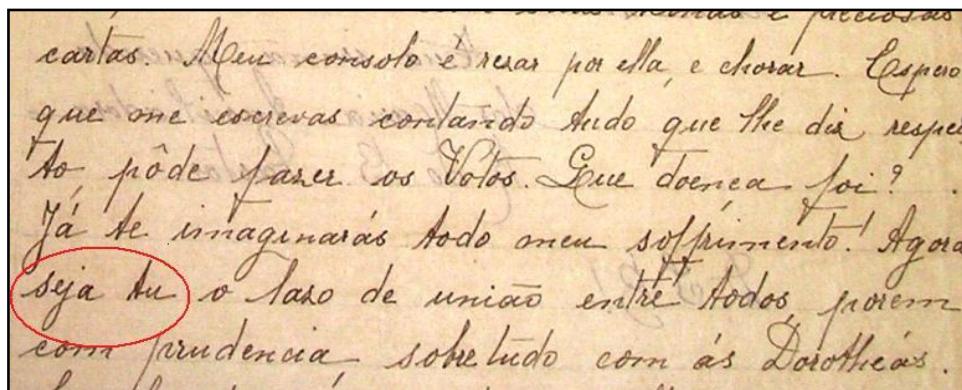 e preciosas
cartas. Meu consolo é resar por ella, e chorar. Espero
que me escrevas contando tudo que lhe diz respei
to, pôde fazer os Votos. Que doença foi?
Já te imaginarás todo meu soffrimento! Agora
seja tu o laso de união entre todos, porem
com prudencia, sobre tudo com ás Dorothéas.